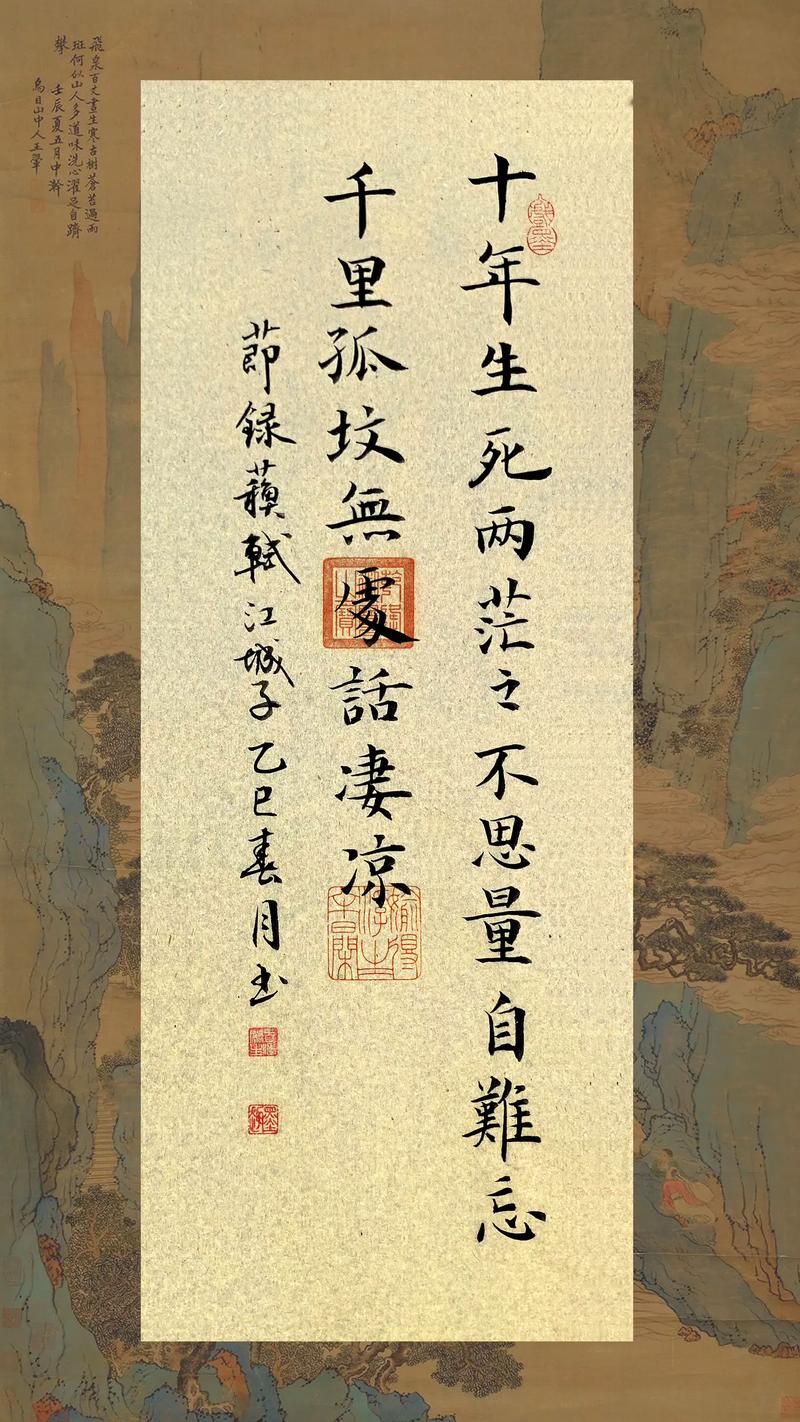 十年生死两茫〻不思量自難忘
千里孤坟無處話凄凉
節録蘇軾江城子乙巳春月书
飛泉百丈晝生寒古樹蒼苔過雨
斑何似山人多道味洗心濯足自躋
攀
壬辰夏五月中澣
烏目山中人王翬